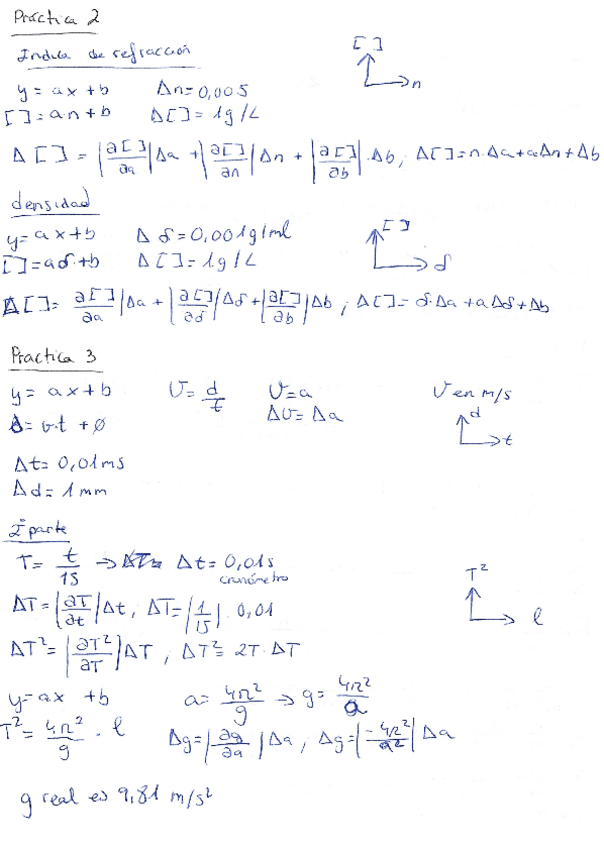 Práctica 2
Índice de refracción
[ ]
n
y = ax + b Δn = 0,005
[ ] = a·n + b Δ[ ] = 1 g/L
Δ[ ] = |∂[ ]/∂a| Δa + |∂[ ]/∂n| Δn + |∂[ ]/∂b| · Δb, Δ[ ] = n·Δa + aΔn + Δb
densidad
y = ax + b Δδ = 0,001 g/ml
[ ]
[ ] = aδ + b Δ[ ] = 1 g/L
δ
Δ[ ] = ∂[ ]/∂a| Δa + |∂[ ]/∂δ| Δδ + |∂[ ]/∂b| Δb ; Δ[ ] = δ·Δa + aΔδ + Δb
Practica 3
y = ax + b v = d/t v = a v en m/s
= v·t + Ø Δv = Δa
d
t
Δt = 0,01 ms
Δd = 1 mm
2ª parte
T = t/15 → Δt = 0,01 s
cronómetro
T²
l
ΔT = |∂T/∂t| Δt, ΔT = |1/15| · 0,01
ΔT² = |∂T²/∂T| ΔT, ΔT² = 2T·ΔT
y = ax + b a = 4π²/g → g = 4π²/a
T² = 4π²/g · l Δg = |∂g/∂a| Δa, Δg = |-4π²/a²| Δa
g real es 9,81 m/s²